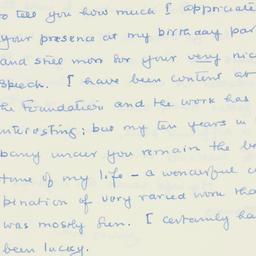 o tell you how much I appreciate
your presence at my birthday par
and still more for your very nic
speech. I have been content at
he Foundation and the work has
interesting; but my ten years in
pany under you remain the be
time of my life - a wonderful c
bination of very varied work tha
was mostly fun. I certainly ha
been lucky.